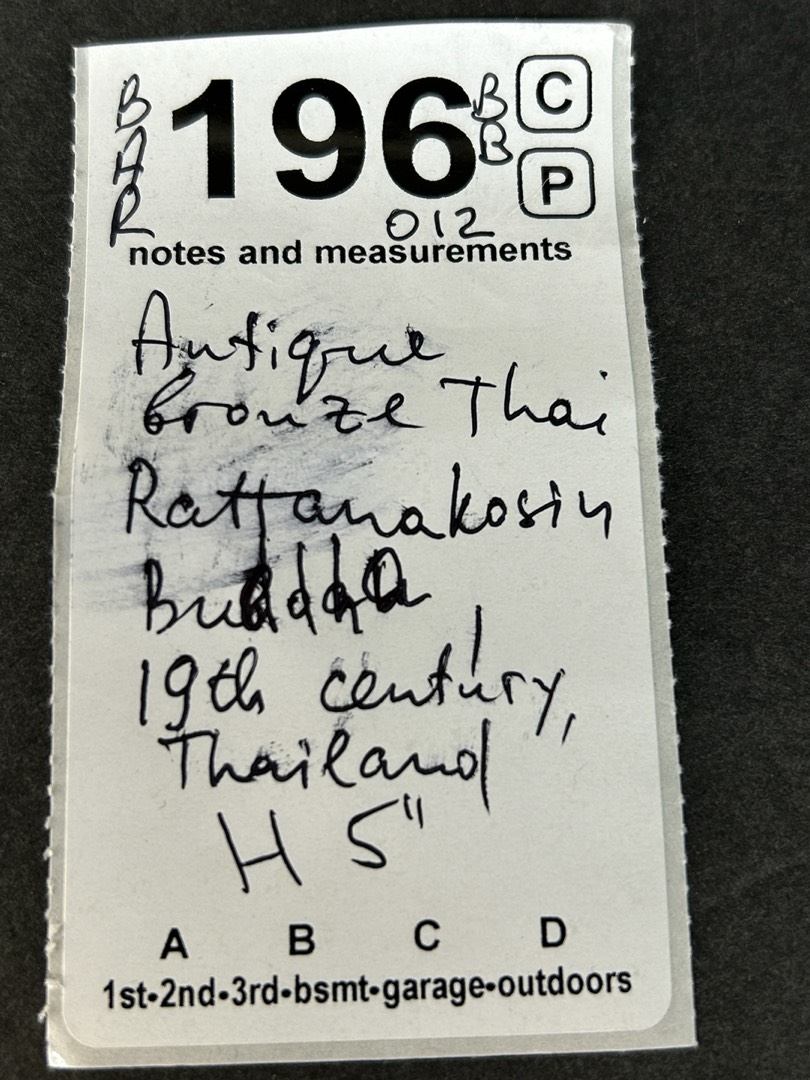 BHR 196 BB C
P
012
notes and measurements
Antique
bronze Thai
Rattanakosin
Buddha
19th century,
Thailand
H 5"
A B C D
1st•2nd•3rd•bsmt•garage•outdoors